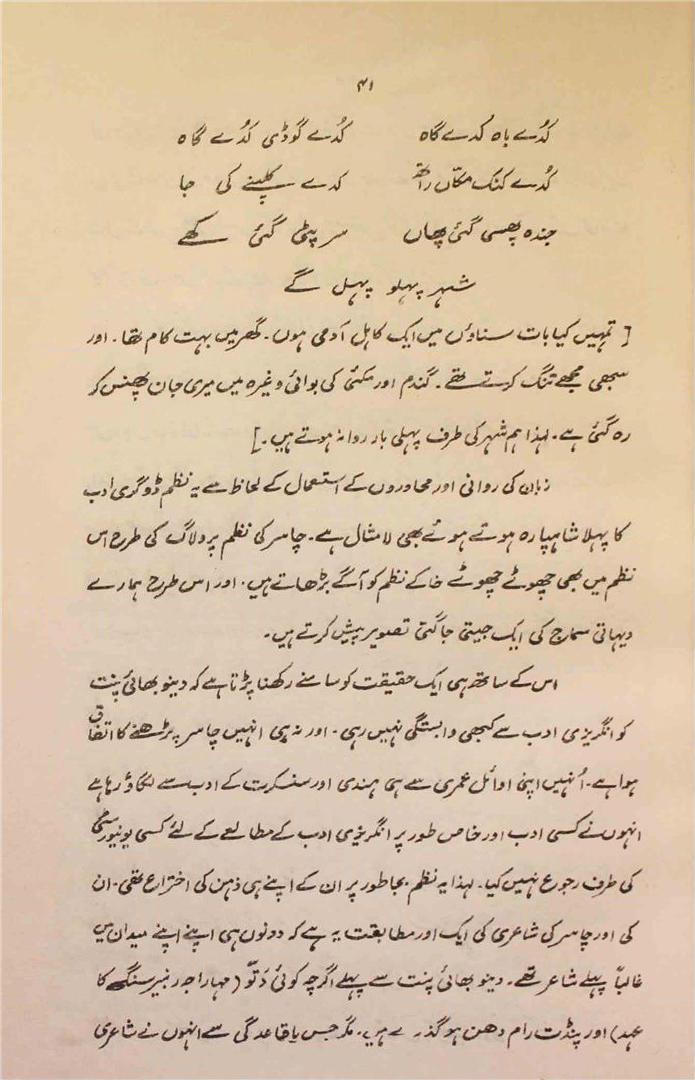 ۴۱
کُدے باہ کدے گاہ کُدے گوڈی کدُے گاہ
کُدے کنک مکاں راھے کدے کلپنے کی جا
جندہ پھسی گئی پھاں سر پٹی گئی کھے
شہر پہلو پہل گے
[ تمہیں کیا بات سناؤں میں ایک کاہل آدمی ہوں۔ گھر میں بہت کام تھا۔ اور
سبھی مجھے تنگ کرتے تھے۔ گندم اور مکئی کی بوائی وغیرہ میں میری جان پھنس کر
رہ گئی ہے۔ لہذا ہم شہر کی طرف پہلی بار روانہ ہوتے ہیں۔]
زبان کی روانی اور محاوروں کے استعمال کے لحاظ سے یہ نظم ڈوگری ادب
کا پہلا شاہپارہ ہوتے ہوئے بھی لامثال ہے۔ چاسر کی نظم پرولاگ کی طرح اس
نظم میں بھی چھوٹے چھوٹے خاکے نظم کو آگے بڑھاتے ہیں۔ اور اس طرح ہمارے
دیہاتی سماج کی ایک جیتی جاگتی تصویر پیش کرتے ہیں۔
اس کے ساتھ ہی ایک حقیقت کو سامنے رکھنا پڑتا ہے کہ دینو بھائی پنت
کو انگریزی ادب سے کبھی وابستگی نہیں رہی۔ اور نہ ہی انہیں چاسر پڑھنے کا اتفاق
ہوا ہے۔ اُنہیں اپنی اوائل عمری سے ہی ہندی اور سنسکرت کے ادب سے لگاؤ رہا ہے
انہوں نے کسی ادب اور خاص طور پر انگریزی ادب کے مطالعے کے لئے کسی یونیورسٹی
کی طرف رجوع نہیں کیا۔ لہذا یہ نظم بجا طور پر ان کے اپنے ہی ذہن کی اختراع تھی۔ ان
کی اور چاسر کی شاعری کی ایک اور مطابقت یہ ہے کہ دونوں ہی اپنے اپنے میدان میں
غالباً پہلے شاعر تھے۔ دینو بھائی پنت سے پہلے اگرچہ کوئی دَتّو (مہاراجہ رنبیر سنگھ کا
عہد) اور پنڈت رام دھن ہو گذرے ہیں۔ مگر جس باقاعدگی سے انہوں نے شاعری